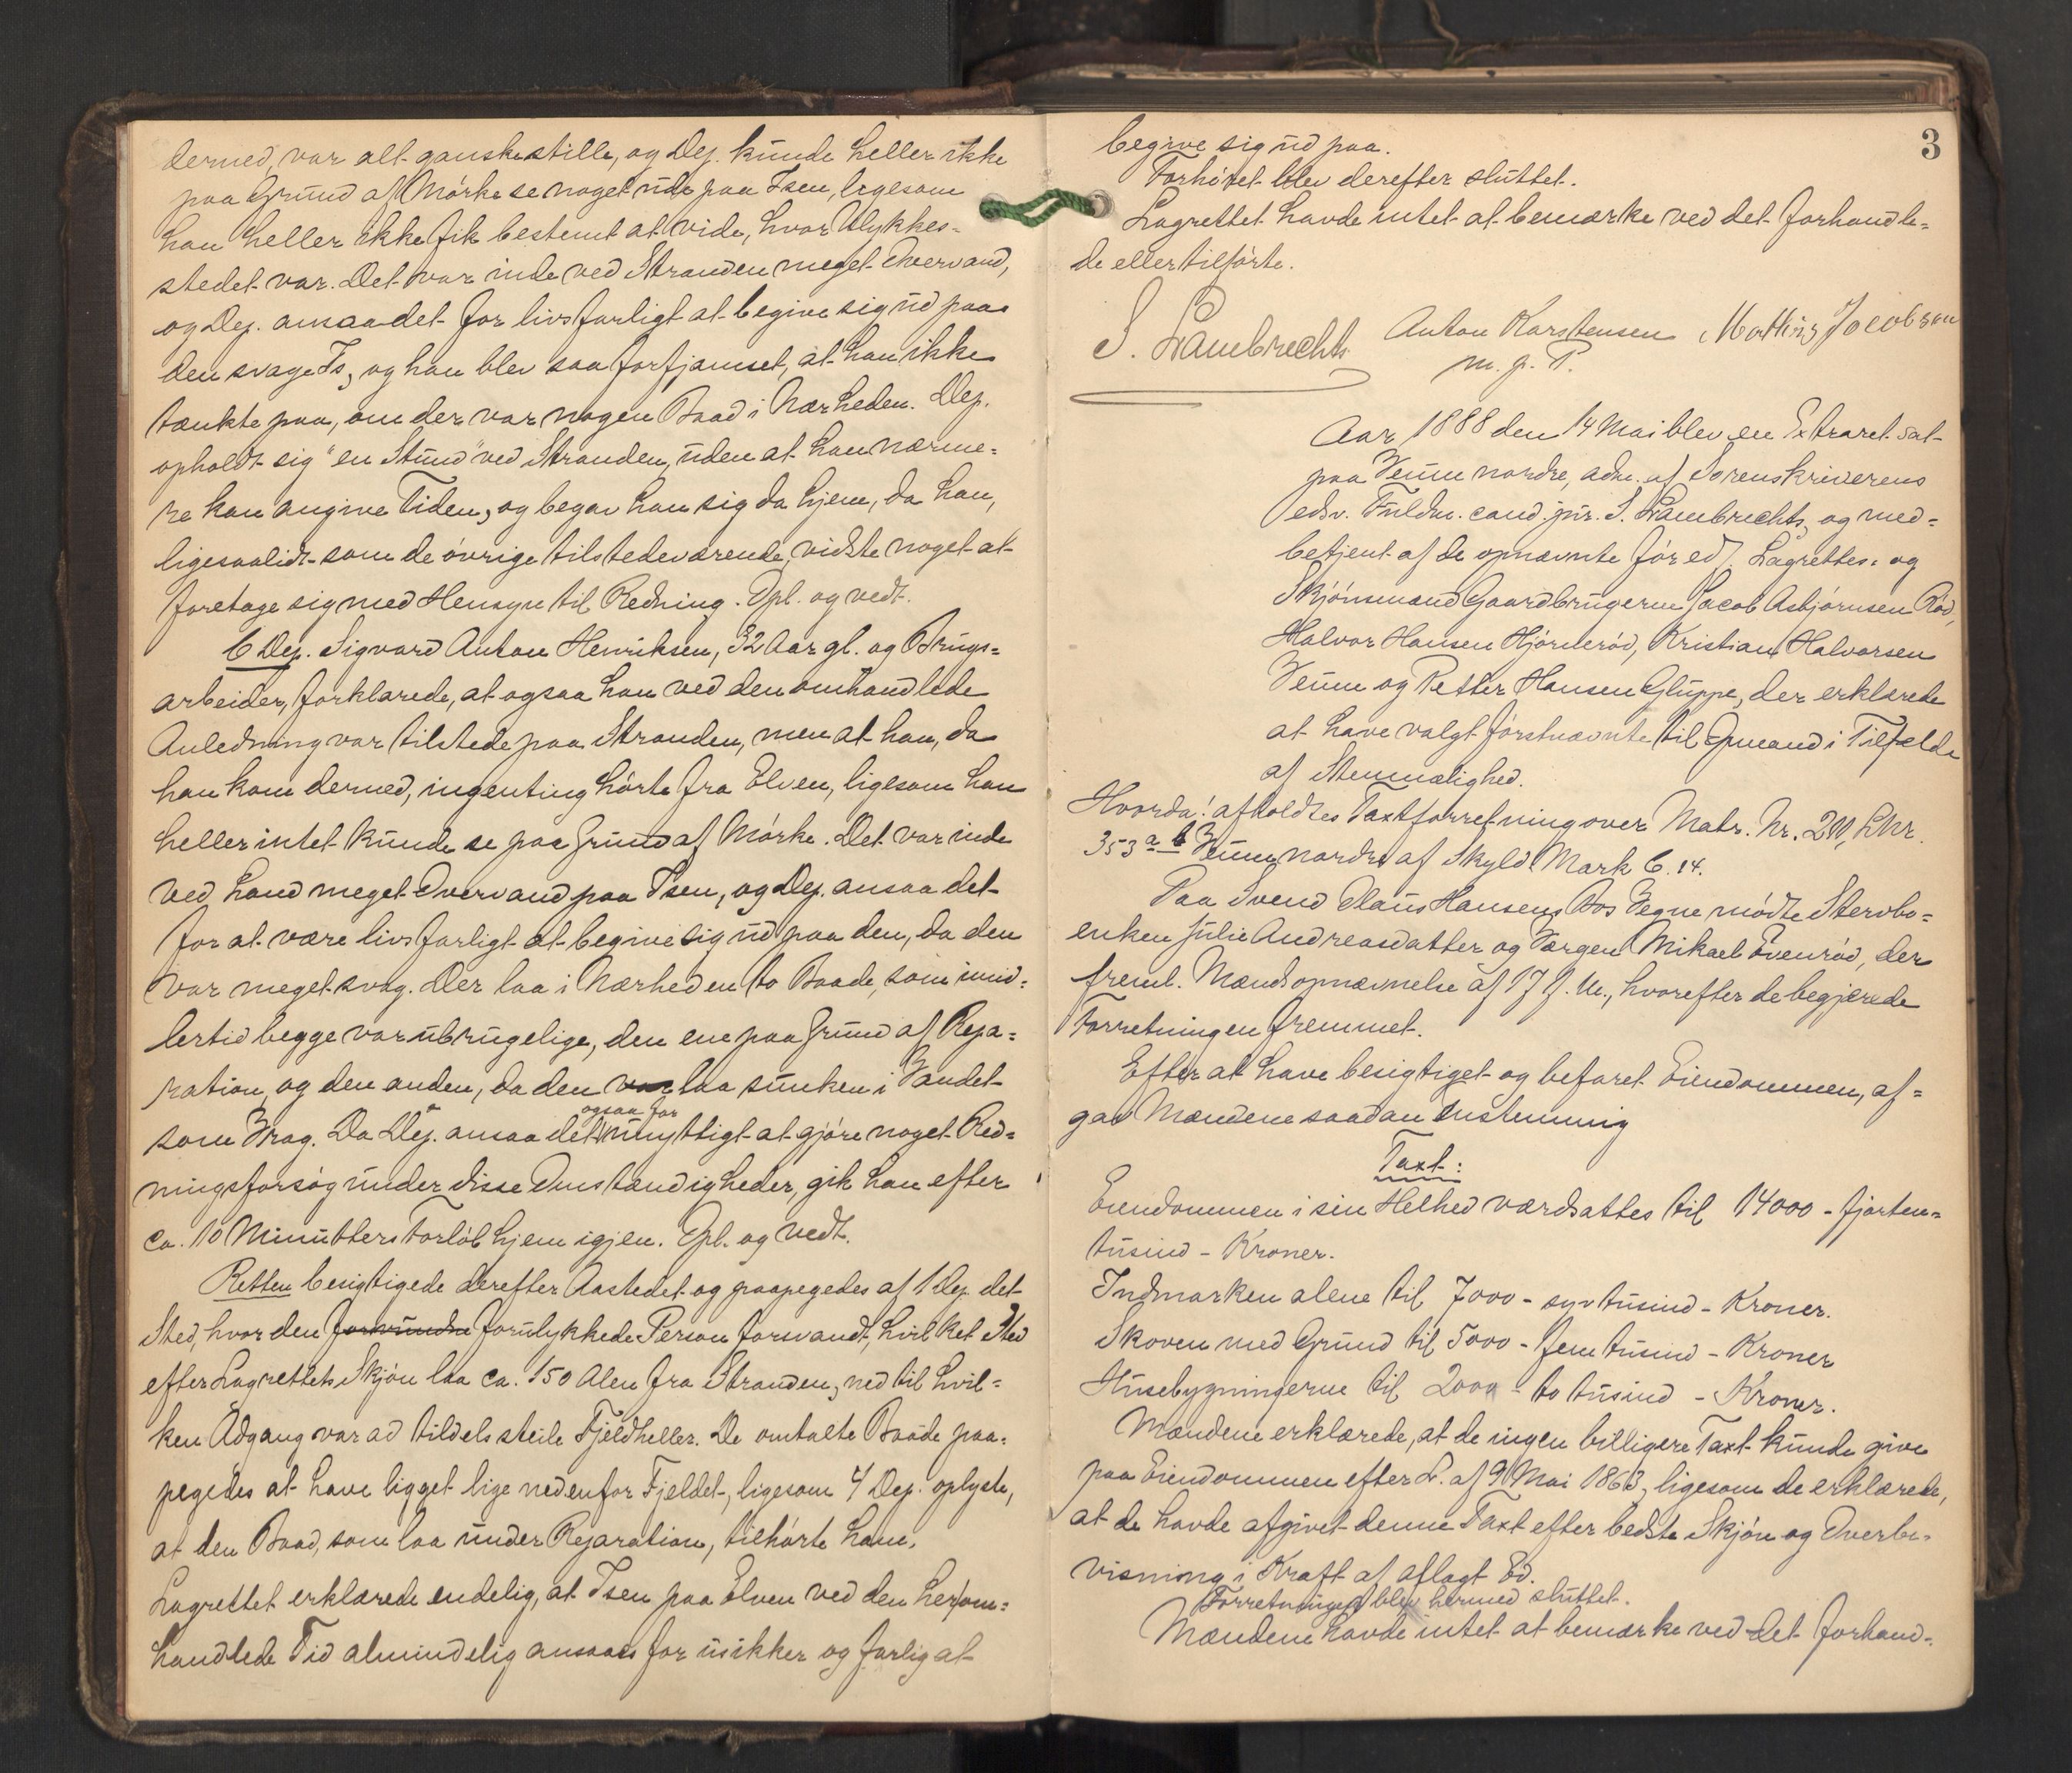 derned, var alt ganske stille, og Dep. kunde heller ikke
paa Grund af Mørke se noget ude paa Isen, ligesom
han heller ikke fik bestemt at vide, hvor Ulykkes=
stedet var. Det var inde ved Stranden meget Overvand,
og Dep. ansaa det for livsfarligt at begive sig ud paa
den svage Is, og han blev saa forfjamset, at han ikke
tænkte paa, om der var nogen Baad i Nærheden. Dep.
opholdt sig "en Stund" ved Stranden, uden at han nærme=
re kan angive Tiden, og begav han sig da hjem, da han,
ligesaalidt som de øvrige tilstedeværende, vidste noget at
foretage sig med Hensyn til Redning. Opl. og vedt.
6 Dep. Sigvard Anton Henriksen, 32 Aar gl. og Brugs=
arbeider, forklarede, at ogsaa han ved den omhandlede
Anledning var tilstede paa Stranden, men at han, da
han kom derned, ingenting hørte fra Elven, ligesom han
heller intet kunde se paa Grund af Mørke. Det var inde
ved Land meget Overvand paa Isen, og Dep. ansaa det
for at være livsfarligt at begive sig ud paa den, da den
var meget svag. Der laa i Nærheden to Baade, som imid=
lertid begge var ubrugelige, den ene paa Grund af Repa=
ration, og den anden, da den var laa sunken i Vandet
som Vrag. Da Dep. ansaa det ogsaa for unyttigt at gjøre noget Red=
ningsforsøg under disse Omstændigheder, gik han efter
ca. 10 Minutters Forløb hjem igjen. Opl. og vedt.
Retten besigtigede derefter Aastedet og paapegedes af 1 Dep. det
Sted, hvor den forsvundne forulykkede Person forsvandt, hvilket Sted
efter Lagrettets Skjøn laa ca. 150 Alen fra Stranden, ned til hvil=
ken Adgang var ad tildels steile Fjeldheller. De omtalte Baade paa=
pegedes at have ligget lige nedenfor Fjeldet, ligesom 4 Dep. oplyste,
at den Baad, som laa under Reparation, tilhørte ham.
Lagrettet erklærede endelig, at Isen paa Elven ved den herom=
handlede Tid almindelig ansaaes for usikker og farlig at
3
begive sig ud paa.
Forhøret blev derefter sluttet.
Lagrettet havde intet at bemærke ved det forhandle=
de eller tilførte.
S. Lambrechts Anton Karstensen Mathis Jacobsen
m. p. P.
Aar 1888 den 14 Mai blev en Extraret sat
paa Veum nordre, adm. af Sorenskriverens
edsv. Fuldm. cand. jur. S. Lambrechts, og med=
betjent af de opnævnte før ed. Lagrettes= og
Skjønsmænd Gaardbrugerne Jacob Asbjørnsen Rød,
Halvor Hansen Hjørnerød, Kristian Halvorsen
Veum og Petter Hansen Gluppe, der erklærede
at have valgt førstnævnte til Opmand i Tilfælde
af Stemmelighed.
Hvorda: afholdtes Taxtforretning over Matr. Nr. 211, Lnr.
353 a b Veum nordre af Skyld Mark 6. 14.
Paa Svend Olaus Hansens Bos Vegne mødte Stervbo=
enken Julie Andreasdatter og Værgen Mikael Evenrød, der
freml. Mandsopnævnelse af 17 f. M., hvorefter de begjærede
Forretningen fremmet.
Efter at have besigtiget og befaret Eiendommen, af=
gav Mændene saadan enstemmig
Taxt:
Eiendommen i sin Helhed værdsattes til 14000 - fjorten=
tusind - Kroner.
Indmarken alene til 7000 - syv tusind - Kroner.
Skoven med Grund til 5000 - fem tusind - Kroner
Husebygningerne til 2000 - to tusind - Kroner.
Mændene erklærede, at de ingen billigere Taxt kunde give
paa Eiendommen efter L. af 9 Mai 1863, ligesom de erklærede,
at de havde afgivet denne Taxt efter bedste Skjøn og Overbe=
visning i Kraft af aflagt Ed.
Forretningen blev hermed sluttet.
Mændene havde intet at bemærke ved det forhand=